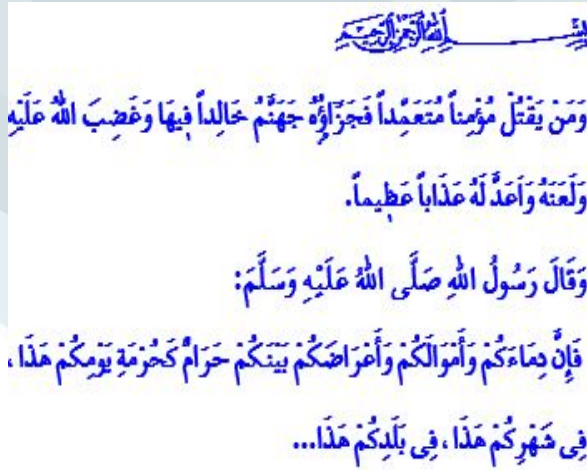 بِسْــــــــــمِ اللهِ الرَّحْمٰنِ الرَّحِيمِ
وَمَنْ يَقْتُلْ مُؤْمِناً مُتَعَمِّداً فَجَزَٓاؤُ۬هُ جَهَنَّمُ خَالِداً ف۪يهَا وَغَضِبَ اللّٰهُ عَلَيْهِ
وَلَعَنَهُ وَاَعَدَّ لَهُ عَذَاباً عَظ۪يماً.
وَقَالَ رَسُولُ اللّٰهِ صَلَّى اللّٰهُ عَلَيْهِ وَسَلَّمَ:
فَإِنَّ دِمَاءَكُمْ وَأَمْوَالَكُمْ وَأَعْرَاضَكُمْ بَيْنَكُمْ حَرَامٌ كَحُرْمَةِ يَوْمِكُمْ هَذَا ،
فِى شَهْرِكُمْ هَذَا ، فِى بَلَدِكُمْ هَذَا...